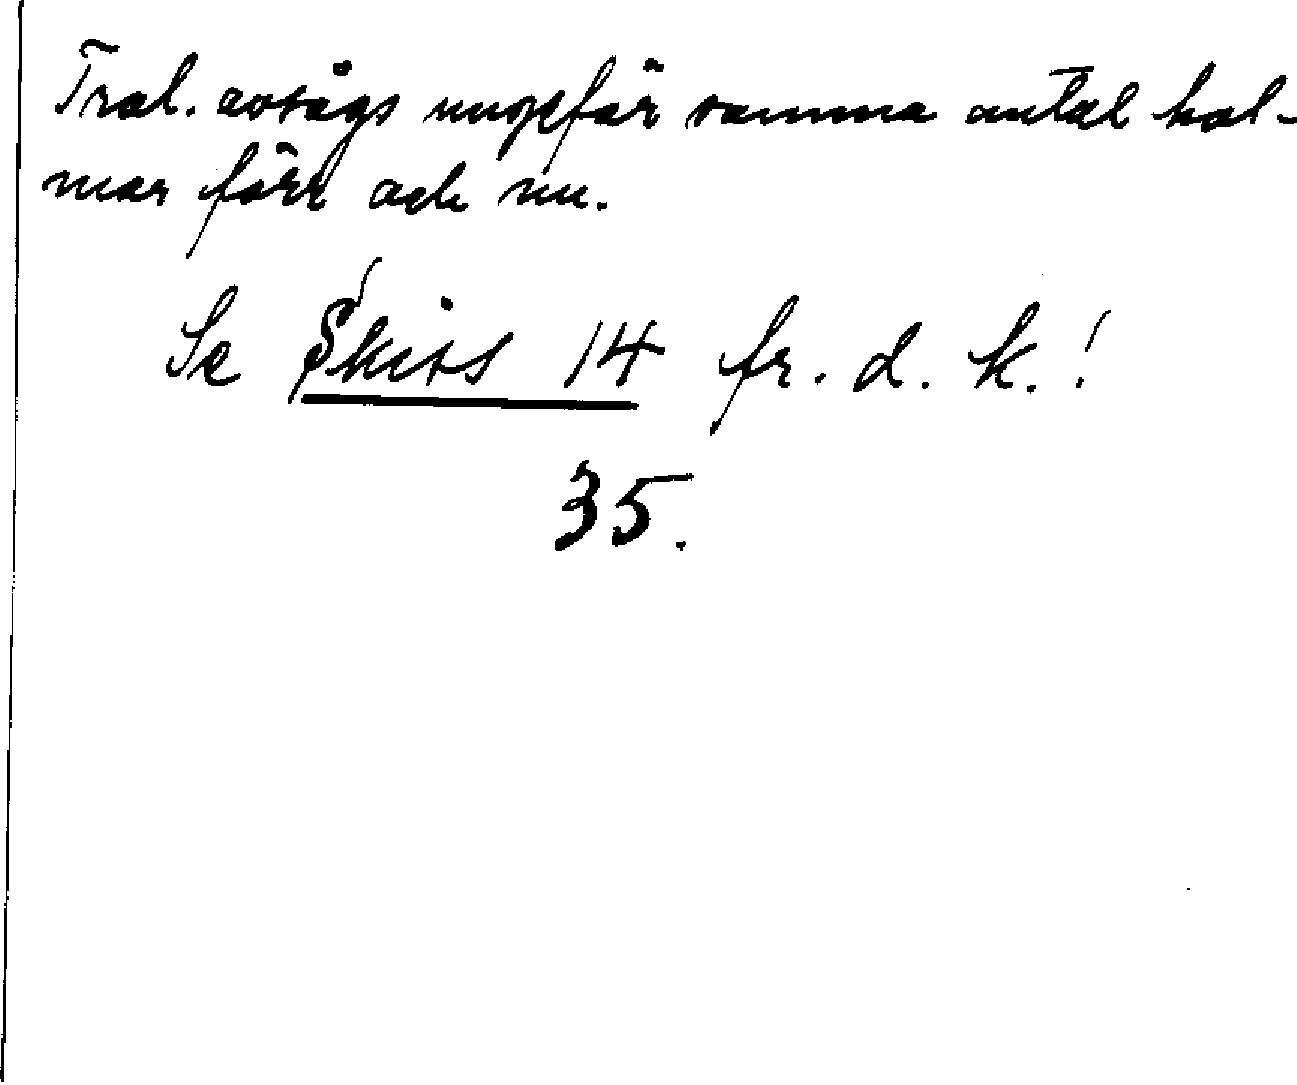 Trol. avsågs ungefär samma antal hol-
mar förr och nu.
Se Skiss 14 fr. d. k.!
35.